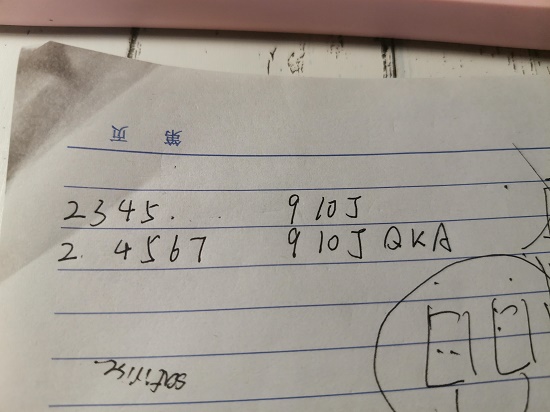 第 页
2345. . . . 9 10 J
2. 4567 9 10 J Q K A
satirise